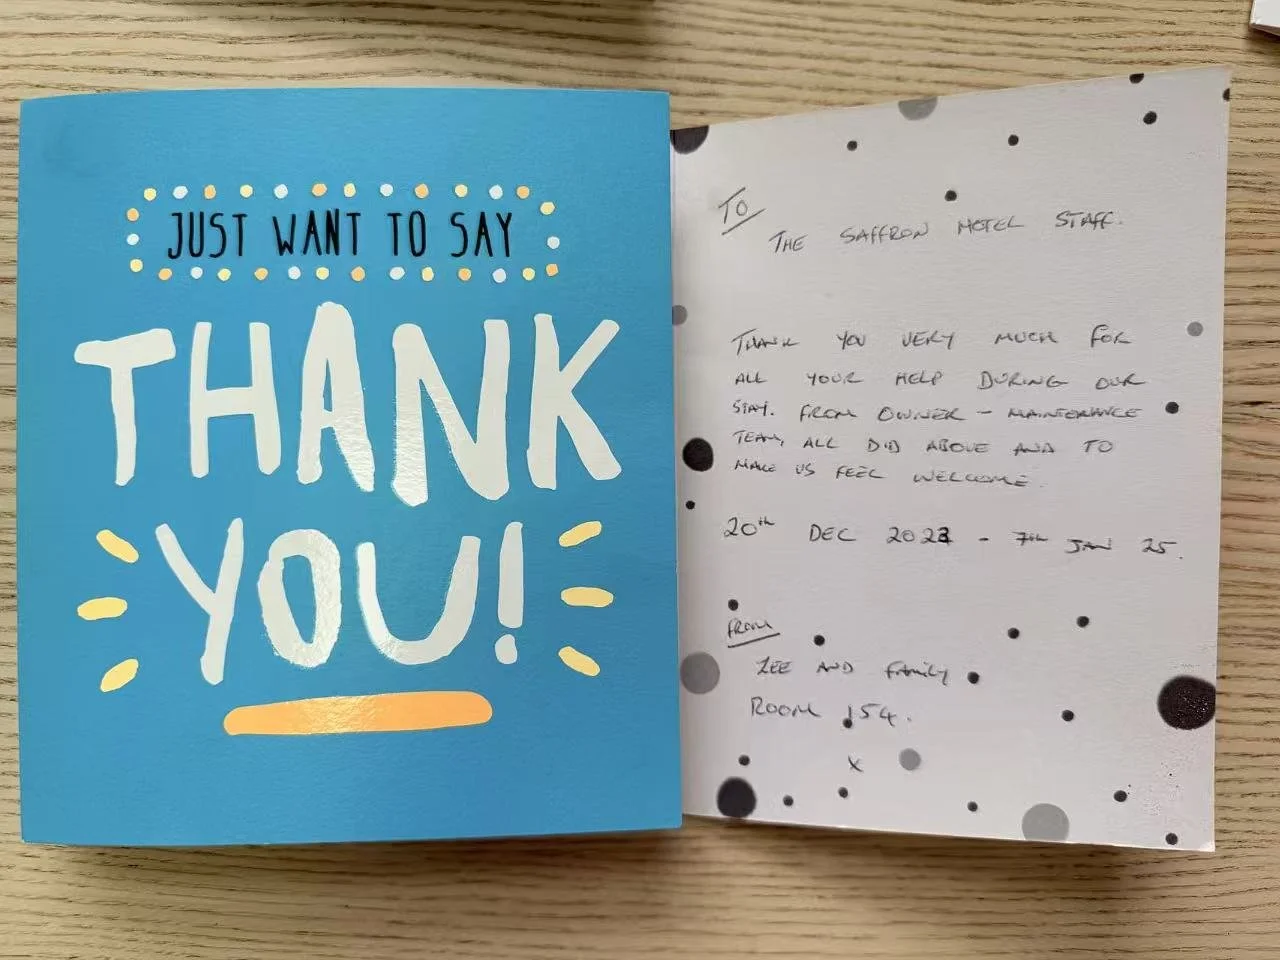 JUST WANT TO SAY
THANK
YOU!
TO
THE SAFFRON HOTEL STAFF.
THANK YOU VERY MUCH FOR
ALL YOUR HELP DURING OUR
STAY. FROM OWNER - MAINTENANCE
TEAM, ALL DID ABOVE AND TO
MAKE US FEEL WELCOME.
20th DEC 2023 - 7th JAN 25.
FROM
LEE AND FAMILY
ROOM 154.
x